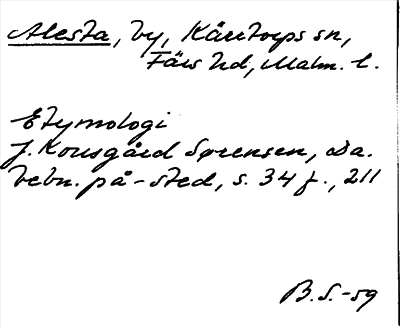 Alesta, by, Kärrtorps sn,
Färs hd, Malm. l.
Etymologi
J. Kousgård Sørensen, Da.
bebn. på -sted, s. 34 f., 211
B.S.-59